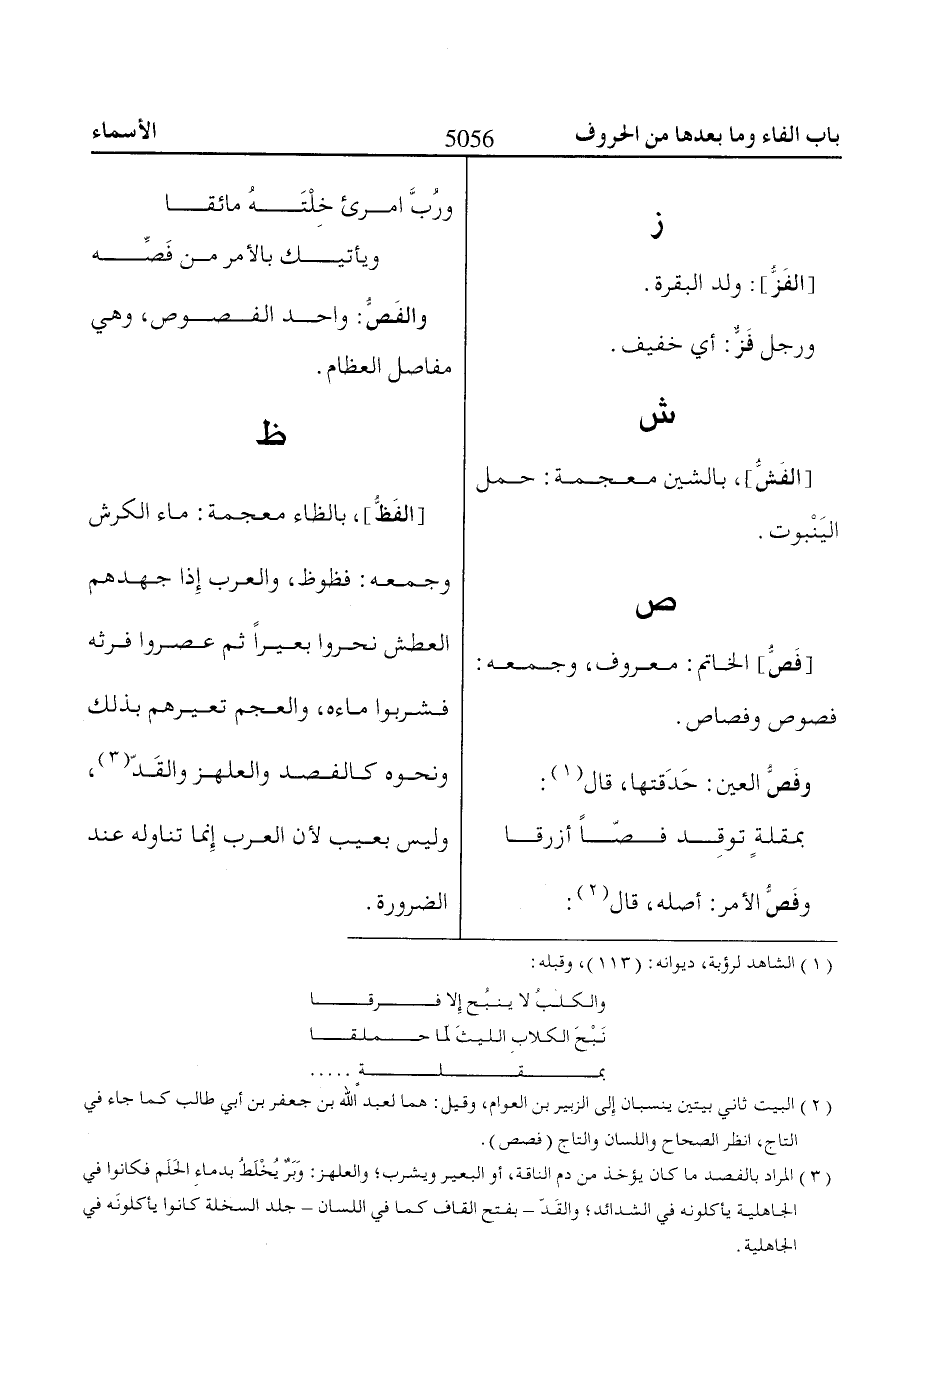 باب الفاء وما بعدها من الحروف 5056 الأسماء
ز
[الفَزُّ]: ولد البقرة.
ورجل فَزٌّ: أي خفيف.
ش
[الفَشُّ]، بالشين معجمة: حمل
اليَنْبوت.
ص
[فَصُّ] الخاتم: معروف، وجمعه:
فصوص وفصاص.
وفَصُّ العين: حَدَقتها، قال(١):
بمقلةٍ توقد فصّاً أزرقا
وفَصُّ الأمر: أصله، قال(٢):
ورُبَّ امرئ خِلْتَهُ مائقا
ويأتيك بالأمر من فَصِّه
والفَصُّ: واحد الفصوص، وهي
مفاصل العظام.
ظ
[الفَظُّ]، بالظاء معجمة: ماء الكرش
وجمعه: فظوظ، والعرب إذا جهدهم
العطش نحروا بعيراً ثم عصروا فرثه
فشربوا ماءه، والعجم تعيرهم بذلك
ونحوه كالفصد والعلهز والقَدّ(٣)،
وليس بعيب لأن العرب إنما تناوله عند
الضرورة.
(١) الشاهد لرؤبة، ديوانه: (١١٣)، وقبله:
والكلبُ لا ينبُح إلا فرقا
نَبْحَ الكلاب الليثَ لما حملقا
بمقلةٍ .....
(٢) البيت ثاني بيتين ينسبان إلى الزبير بن العوام، وقيل: هما لعبد الله بن جعفر بن أبي طالب كما جاء في
التاج، انظر الصحاح واللسان والتاج (فصص).
(٣) المراد بالفصد ما كان يؤخذ من دم الناقة، أو البعير ويشرب؛ والعلهز: وَبَرٌ يُخْلَطُ بدماء الحَلَم فكانوا في
الجاهلية يأكلونه في الشدائد؛ والقَدّ – بفتح القاف كما في اللسان – جلد السخلة كانوا يأكلونَه في
الجاهلية.